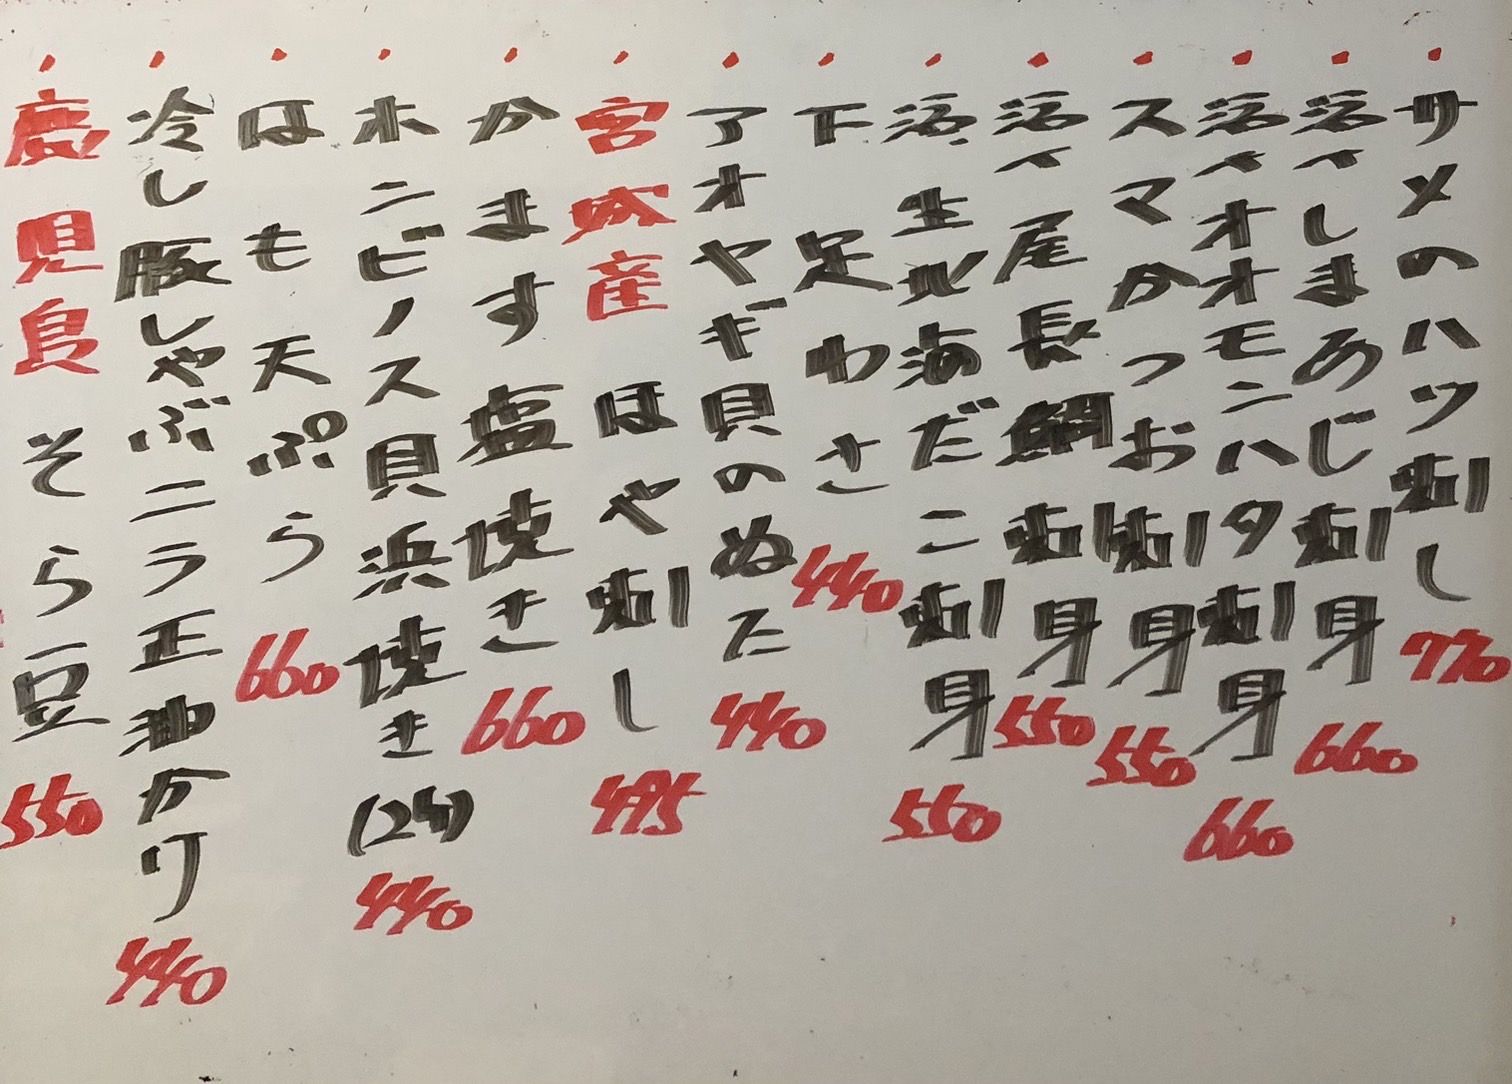 ・サメのハツ刺し 770
・活〆しまあじ刺身 660
・活〆オオモンハタ刺身 660
・スマかつお刺身 550
・活〆尾長鯛刺身 550
・活生北海だこ刺身 550
・下足わさ 440
・アオヤギ貝のぬた 440
・宮城産 ほや刺し 495
・かます塩焼き 660
・ホンビノス貝浜焼き(2ヶ) 440
・はも天ぷら 660
・冷し豚しゃぶニラ正油かけ 440
・鹿児島 そら豆 550